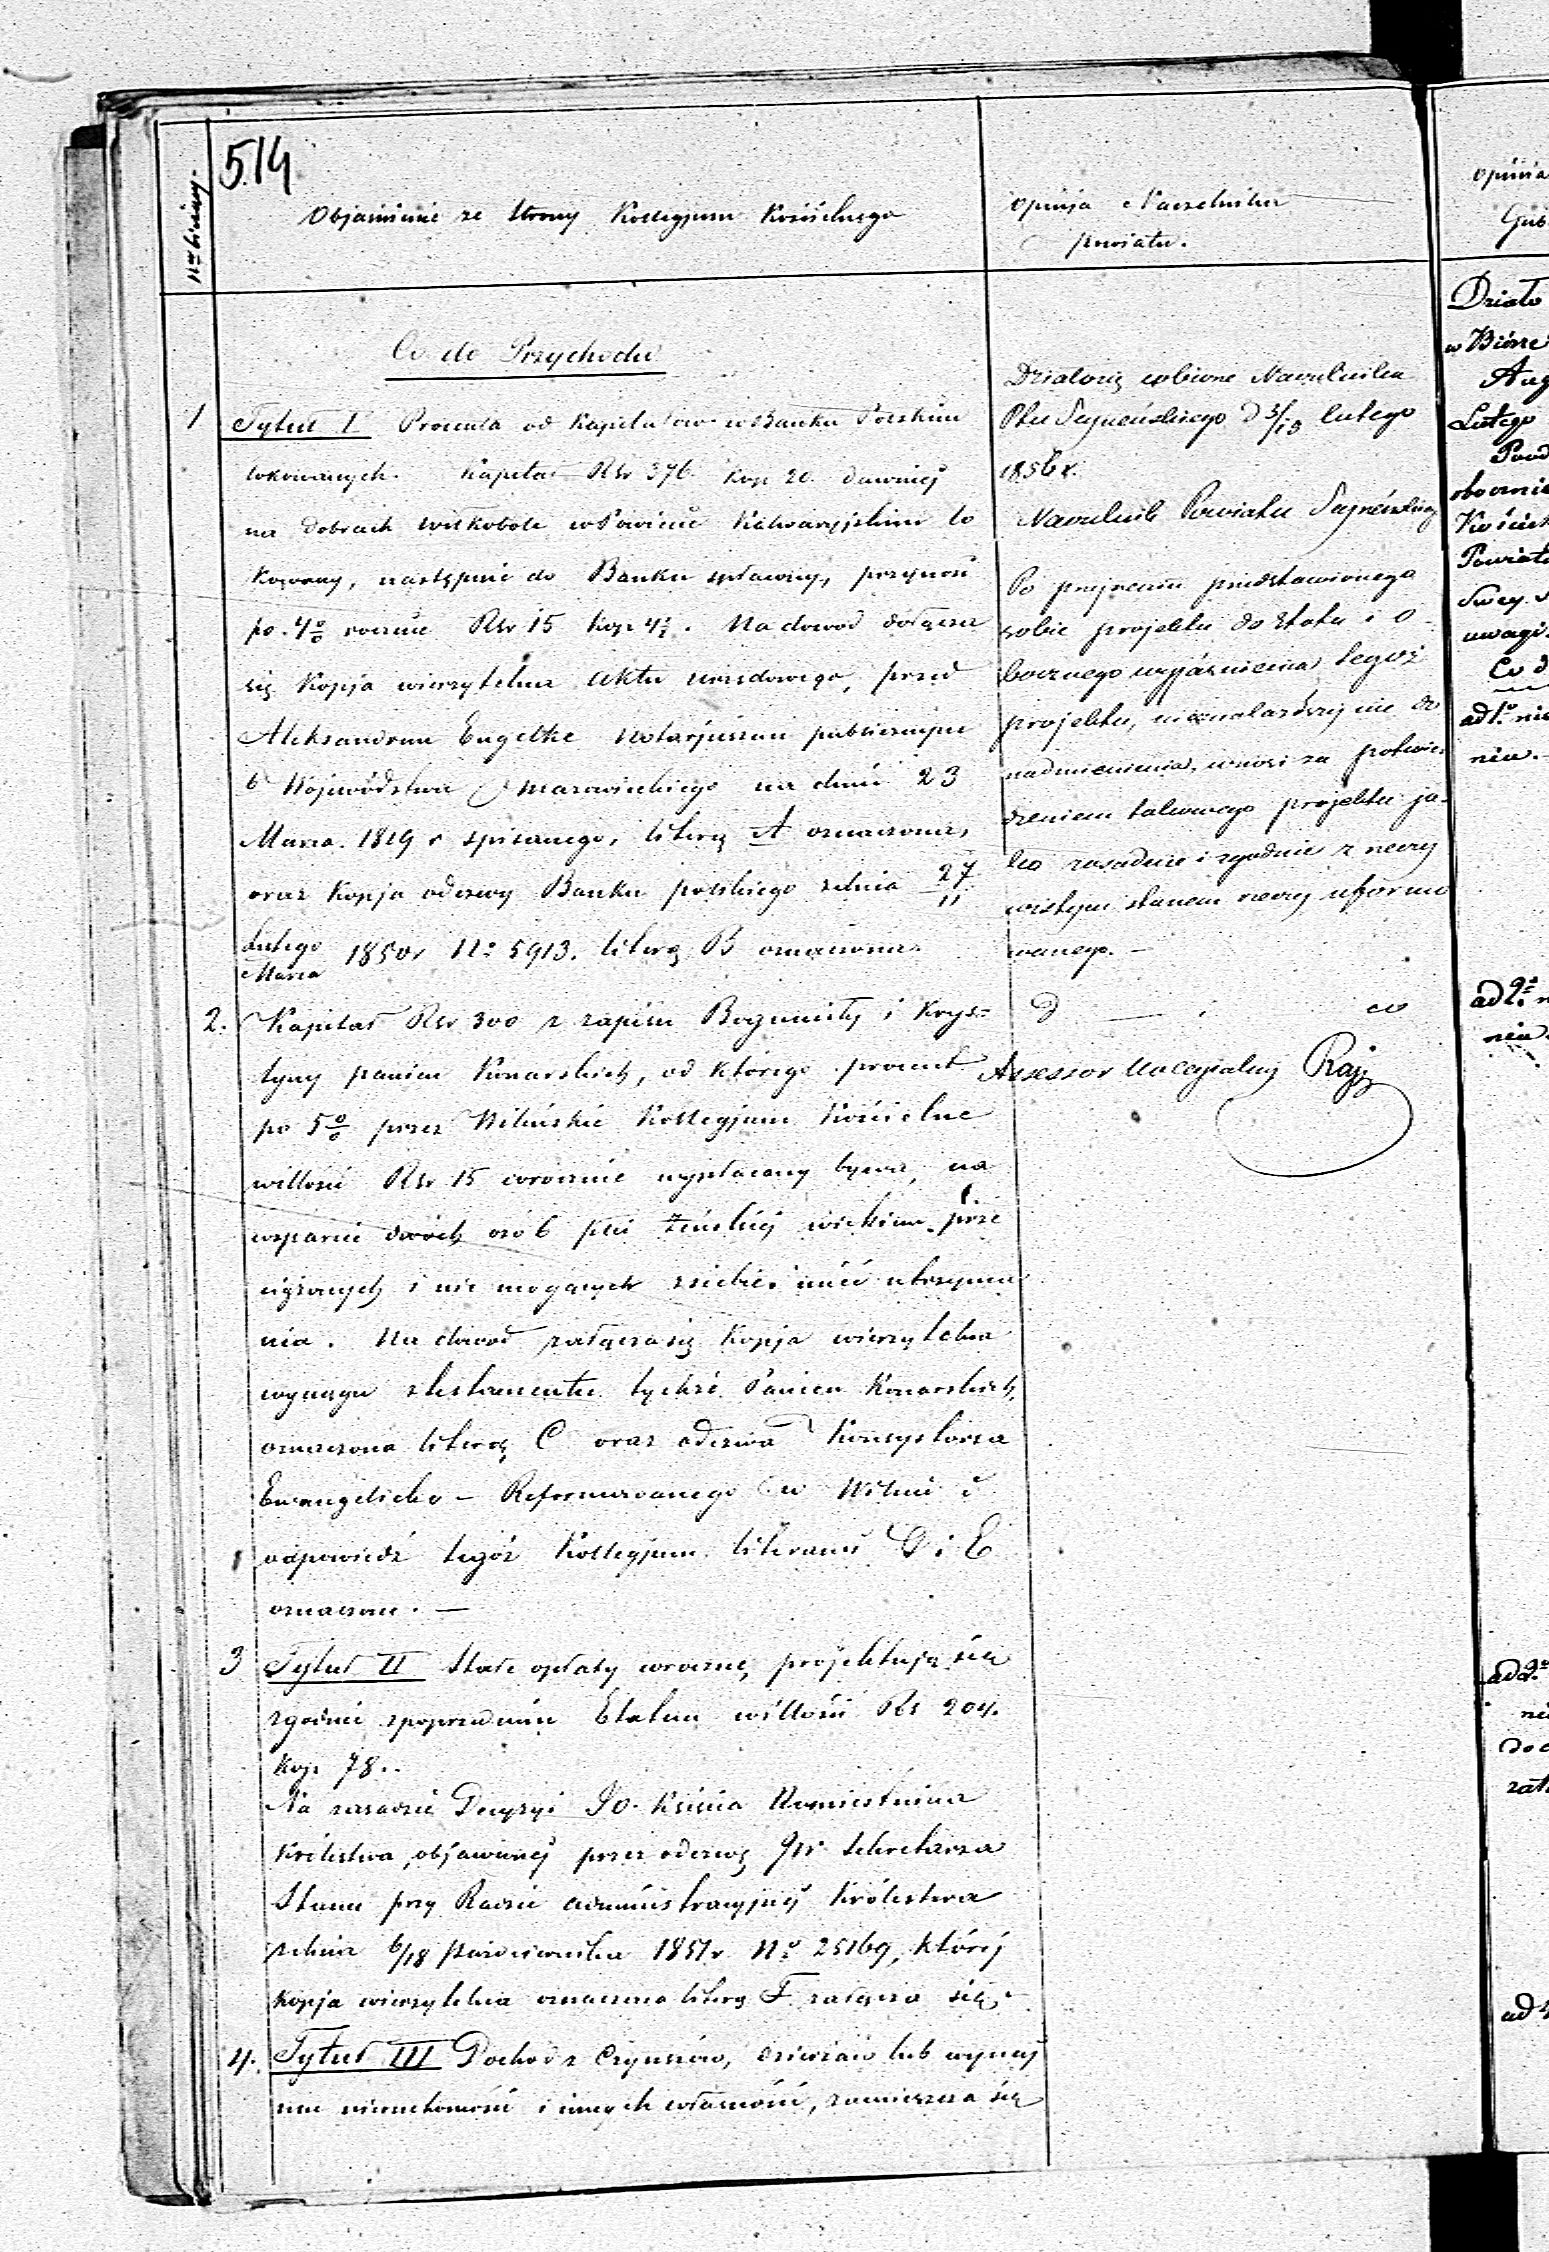 514
Nro bieżący.
Objaśnienie ze strony Kollegjum Kościelnego
Opinja Naczelnika
powiatu.
Co do Przychodu
1
Tytuł I Procenta od Kapitałów w Banku Polskim
lokowanych. Kapitał Rsr 376 kop 20 dawniej
na dobrach Wilkobole w Powiecie Kalwaryjskim lo
kowany, następnie do Banku spławny, przynosi
po 4% rocznie Rsr 15 kop 4½. Na dowód dołącza
się Kopja wierzytelna Aktu urzędowego, przed
Aleksandrem Engelke Notarjuszem publicznym
b Województwa Mazowieckiego na dniu 23
Marca 1819 r spisanego, literą A oznaczona,
oraz Kopja odezwy Banku polskiego z dnia 27/11
Lutego/Marca 1850 r No 5913. literą B oznaczona.
2. Kapitał Rsr 300 z zapisu Bogumiły i Krys=
tyny panien Konarskich, od którego procent
po 5% przez Wileńskie Kollegjum Kościelne
w ilości Rsr 15 corocznie wypłacany bywa, na
wsparcie dwóch osób płci żeńskiej wiekiem prze
ciążonych i nie mogących z siebie mieć utrzyma
nia. Na dowód załącza się Kopja wierzytelna
wyciągu z testamentu tychże Panien Konarskich,
oznaczona literą C oraz odezwa Konsystorza
Ewangelicko - Reformowanego w Wilnie i
odpowiedź tegóż Kollegjum literami D i E
oznaczone. —
3 Tytuł II Stałe opłaty coroczne, projektują się
zgodnie z poprzednim Etatem w ilości Rs 204.
kop 78.
Na zasadzie Decyzyi JO. Księcia Namiestnika
Królestwa, objawionej przez odezwę JW Sekretarza
Stanu przy Radzie Administracyjnej Królestwa
z dnia 6/18 Października 1851 r No 25169, której
Kopja wierzytelna oznaczona literą F załącza się.
4. Tytuł III Dochód z Czynszów, dzierżaw lub wynaj
mu nieruchomości i innych własności, zamieszcza się
Działo się w biórze Naczelnika
Ptu Sejneńskiego D 3/15 lutego
1856 r.
Naczelnik Powiatu Sejneńskiego
Po przejrzeniu przedstawionego
sobie projektu do Etatu i o
bocznego wyjaśnienia tegoż
projektu, nieznalazłszy nic do
nadmienienia, wnosi za potwier
dzeniem takowego projektu ja=
ko zasadnie i zgodnie z rzeczy
wistym stanem rzeczy uformo
wanego. —
d — co
Assessor Kollegialny
opinia
Gub
Działo
w Biórze
Aug
Lutego
Kościel
Powiatu
uwagi
Co d
ad 1o nie
nia.
ad 2o n
nia
ni
do
zat
ad 4